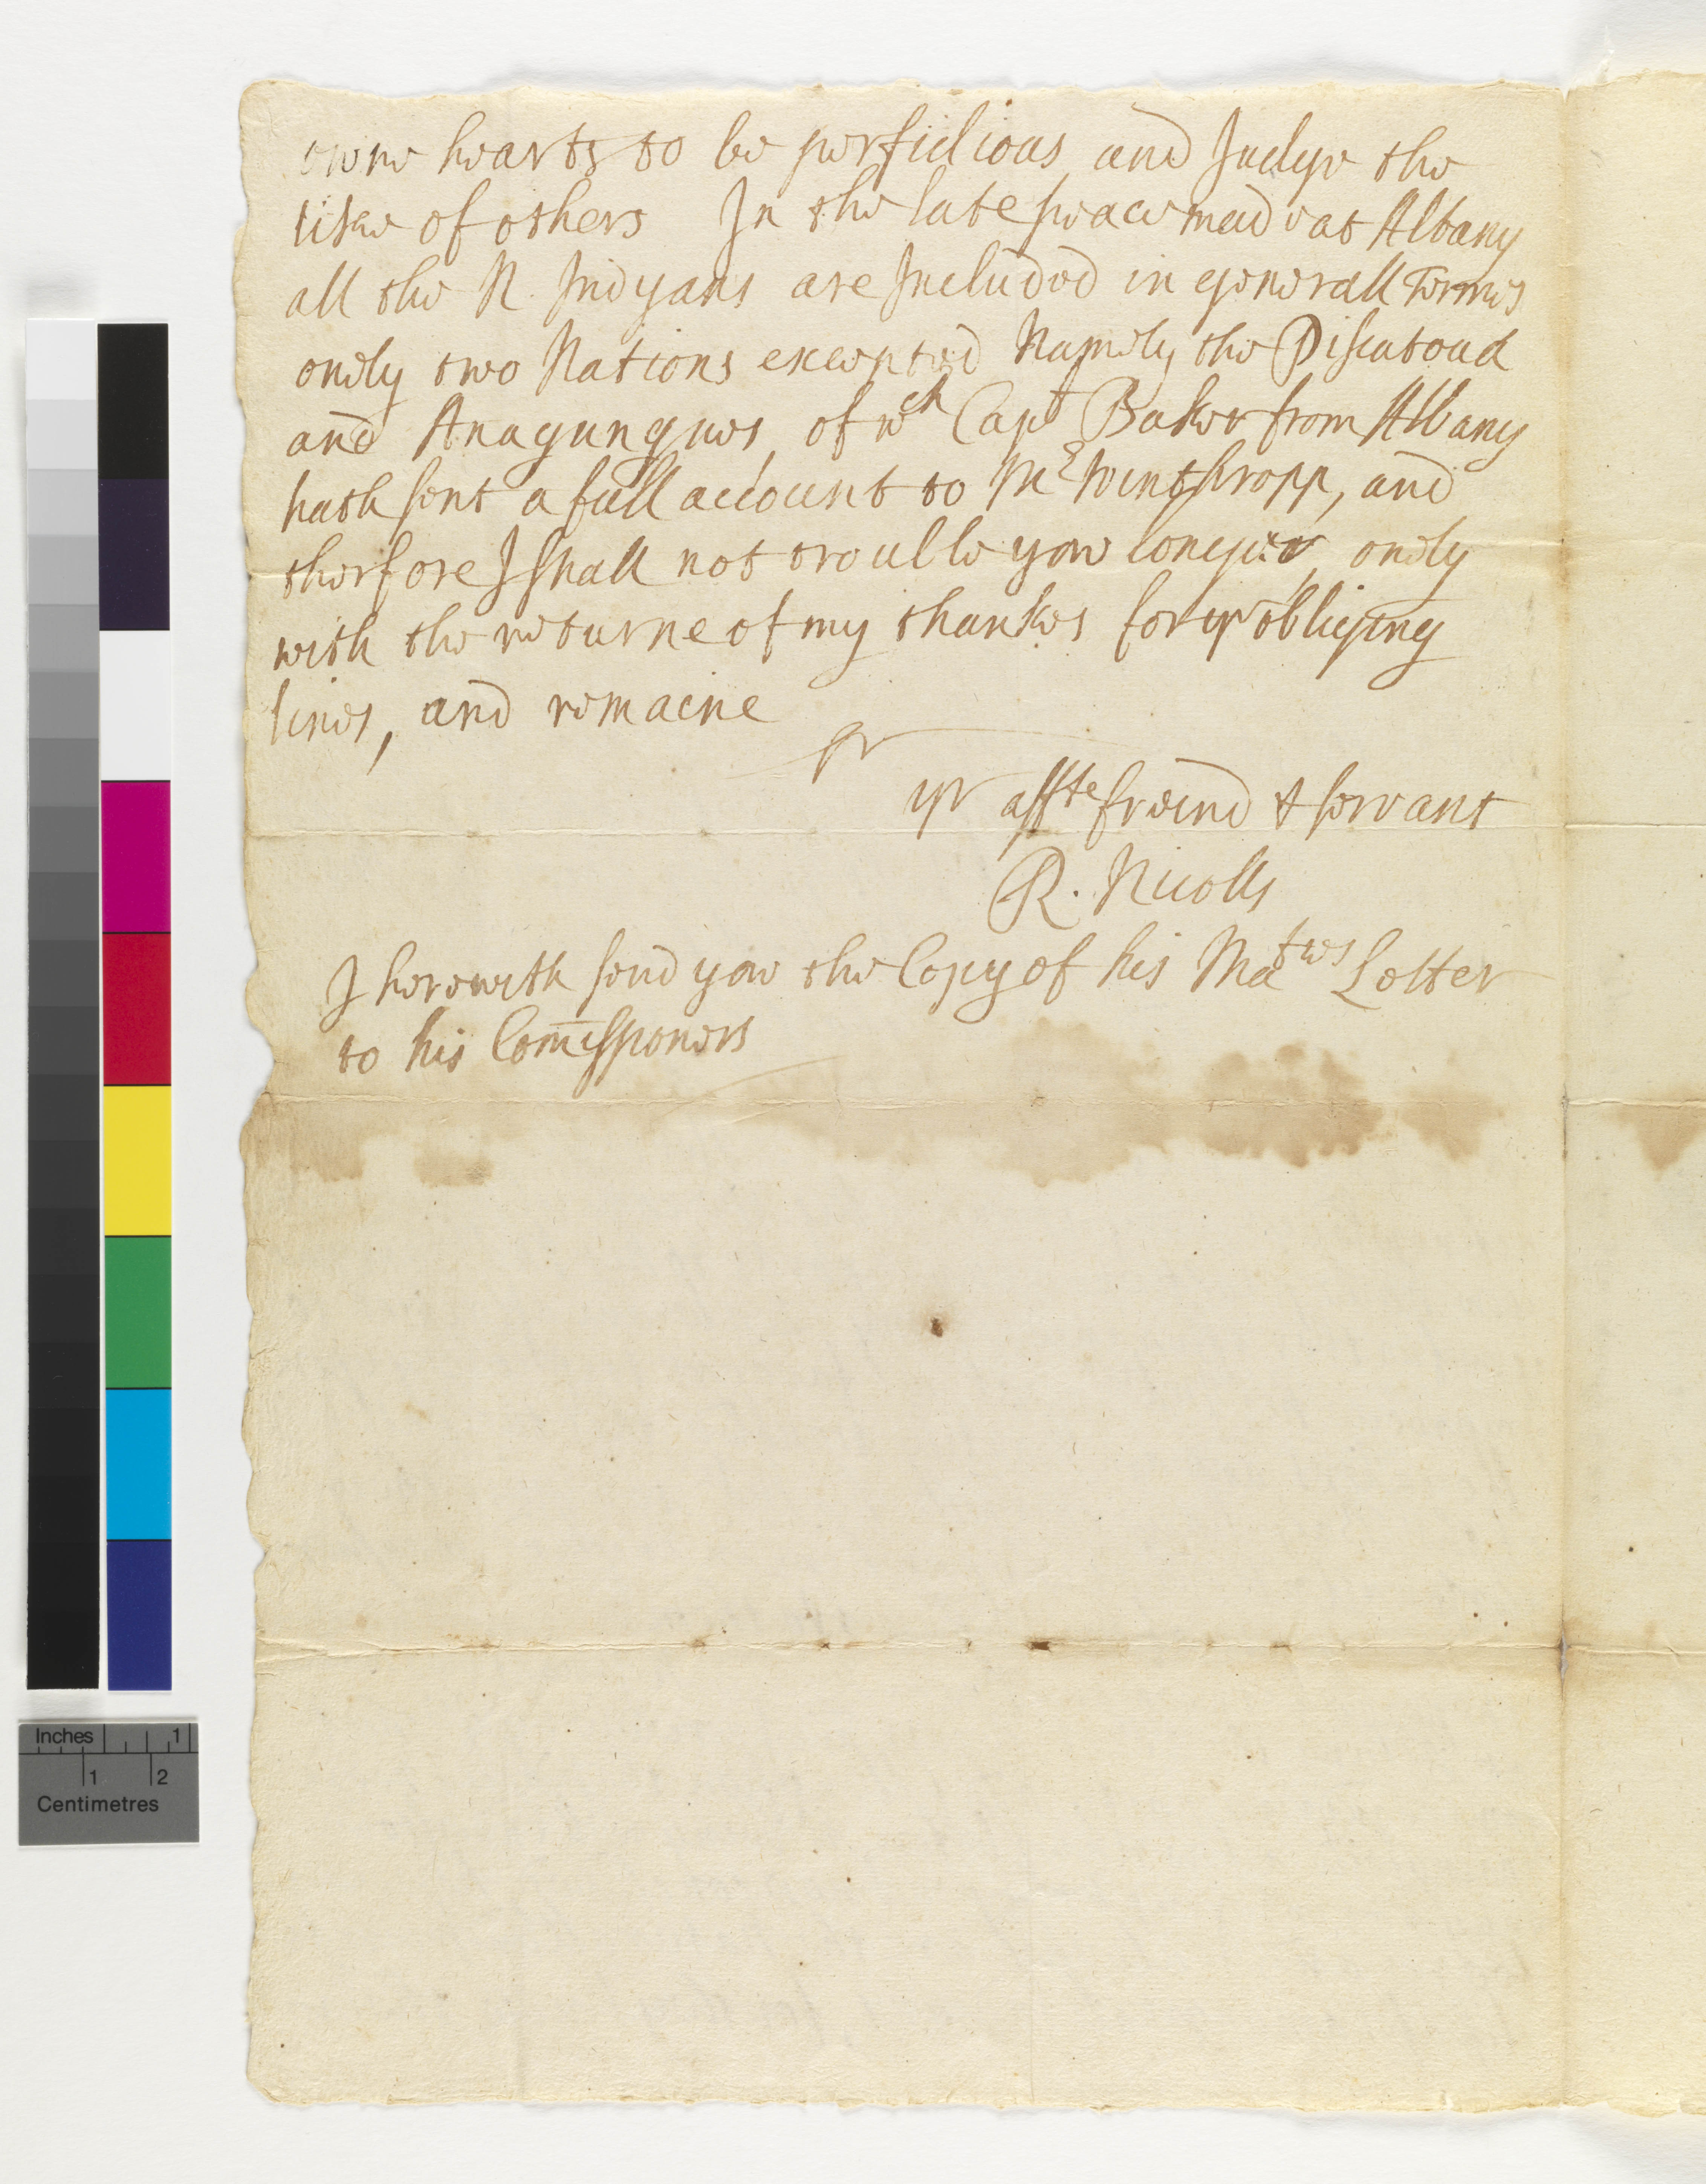 owne hearts to be perfidious and Judge the
like of others In the late peace made at Albany
all the N. Indyans are Included in generall Termes
onely two Nations excepted Namely the Piscatoua
and Anagunques, of wch Capt Baker from Albany
hath sent a full account to Mr Winthropp, and
therfore I shall not trouble yow longer, onely
with the returne of my thankes for yr obligeing
lines, and remaine
Sr
yr affte freind & servant
R. Nicolls
I herewith send yow the Copy of his Maties Letter
to his Comissioners
Inches 1
1 2
Centimetres